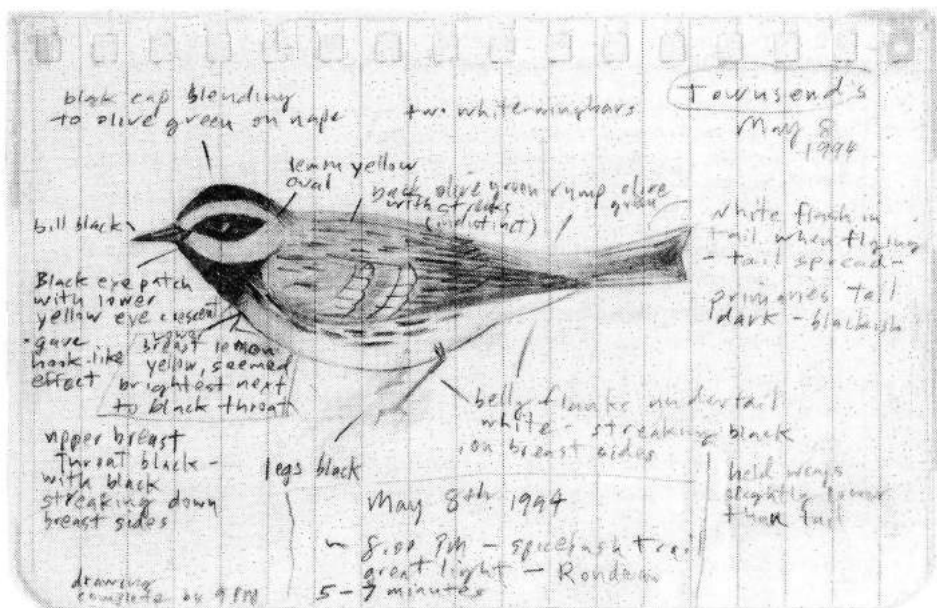 black cap blending
to olive green on nape
two white wingbars
Townsend's
May 8
1994
lemon yellow
oval
back olive green
with streaks
(indistinct)
rump olive
green
bill black
white flash in
tail when flying
- tail spread -
primaries tail
dark - blackish
Black eye patch
with lower
yellow eye crescent
- gave
effect
breast lemon
yellow, seemed
brightest next
to black throat
belly flanks undertail
white - streaking black
on breast sides
upper breast
throat black -
with black
streaking down
breast sides
legs black
held wings
slightly lower
than tail
May 8th 1994
~ 8.00 PM - spicebush trail
great light - Rondeau
5-7 minutes
drawing
complete by 9 PM